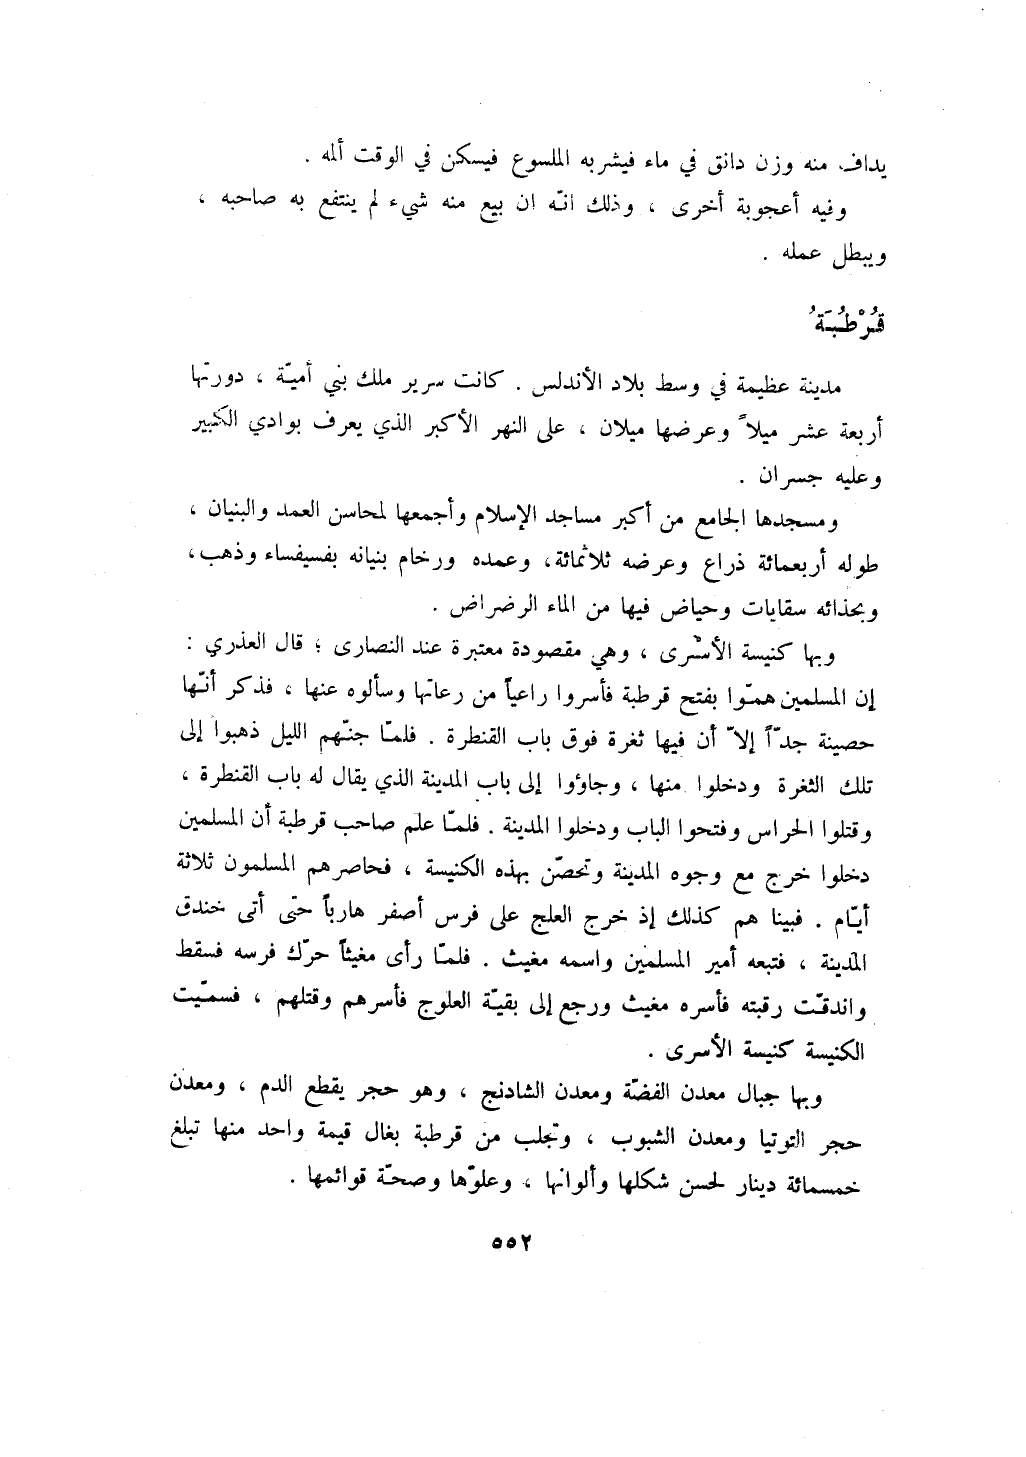 يداف منه وزن دانق في ماء فيشربه الملسوع فيسكن في الوقت ألمه .
وفيه أعجوبة أخرى ، وذلك انّه ان بيع منه شيء لم ينتفع به صاحبه ،
ويبطل عمله .
قُرْطُبَةُ
مدينة عظيمة في وسط بلاد الأندلس . كانت سرير ملك بني أميّة ، دورتها
أربعة عشر ميلاً وعرضها ميلان ، على النهر الأكبر الذي يعرف بوادي الكبير
وعليه جسران .
ومسجدها الجامع من أكبر مساجد الإسلام وأجمعها لمحاسن العمد والبنيان ،
طوله أربعمائة ذراع وعرضه ثلاثمائة ، وعمده ورخام بنيانه بفسيفساء وذهب ،
وبحذائه سقايات وحياض فيها من الماء الرضراض .
وبها كنيسة الأسْرى ، وهي مقصودة معتبرة عند النصارى ؛ قال العذري :
إن المسلمين همّوا بفتح قرطبة فأسروا راعياً من رعاتها وسألوه عنها ، فذكر أنّها
حصينة جدّاً إلاّ أن فيها ثغرة فوق باب القنطرة . فلمّا جنّهم الليل ذهبوا إلى
تلك الثغرة ودخلوا منها ، وجاؤوا إلى باب المدينة الذي يقال له باب القنطرة ،
وقتلوا الحراس وفتحوا الباب ودخلوا المدينة . فلمّا علم صاحب قرطبة أن المسلمين
دخلوا خرج مع وجوه المدينة وتحصّن بهذه الكنيسة ، فحاصرهم المسلمون ثلاثة
أيّام . فبينا هم كذلك إذ خرج العلج على فرس أصفر هارباً حتى أتى خندق
المدينة ، فتبعه أمير المسلمين واسمه مغيث . فلمّا رأى مغيثاً حرّك فرسه فسقط
واندقّت رقبته فأسره مغيث ورجع إلى بقيّة العلوج فأسرهم وقتلهم ، فسمّيت
الكنيسة كنيسة الأسرى .
وبها جبال معدن الفضّة ومعدن الشادنج ، وهو حجر يقطع الدم ، ومعدن
حجر التوتيا ومعدن الشبوب ، وتجلب من قرطبة بغال قيمة واحد منها تبلغ
خمسمائة دينار لحسن شكلها وألوانها ، وعلوّها وصحّة قوائمها .
٥٥٢